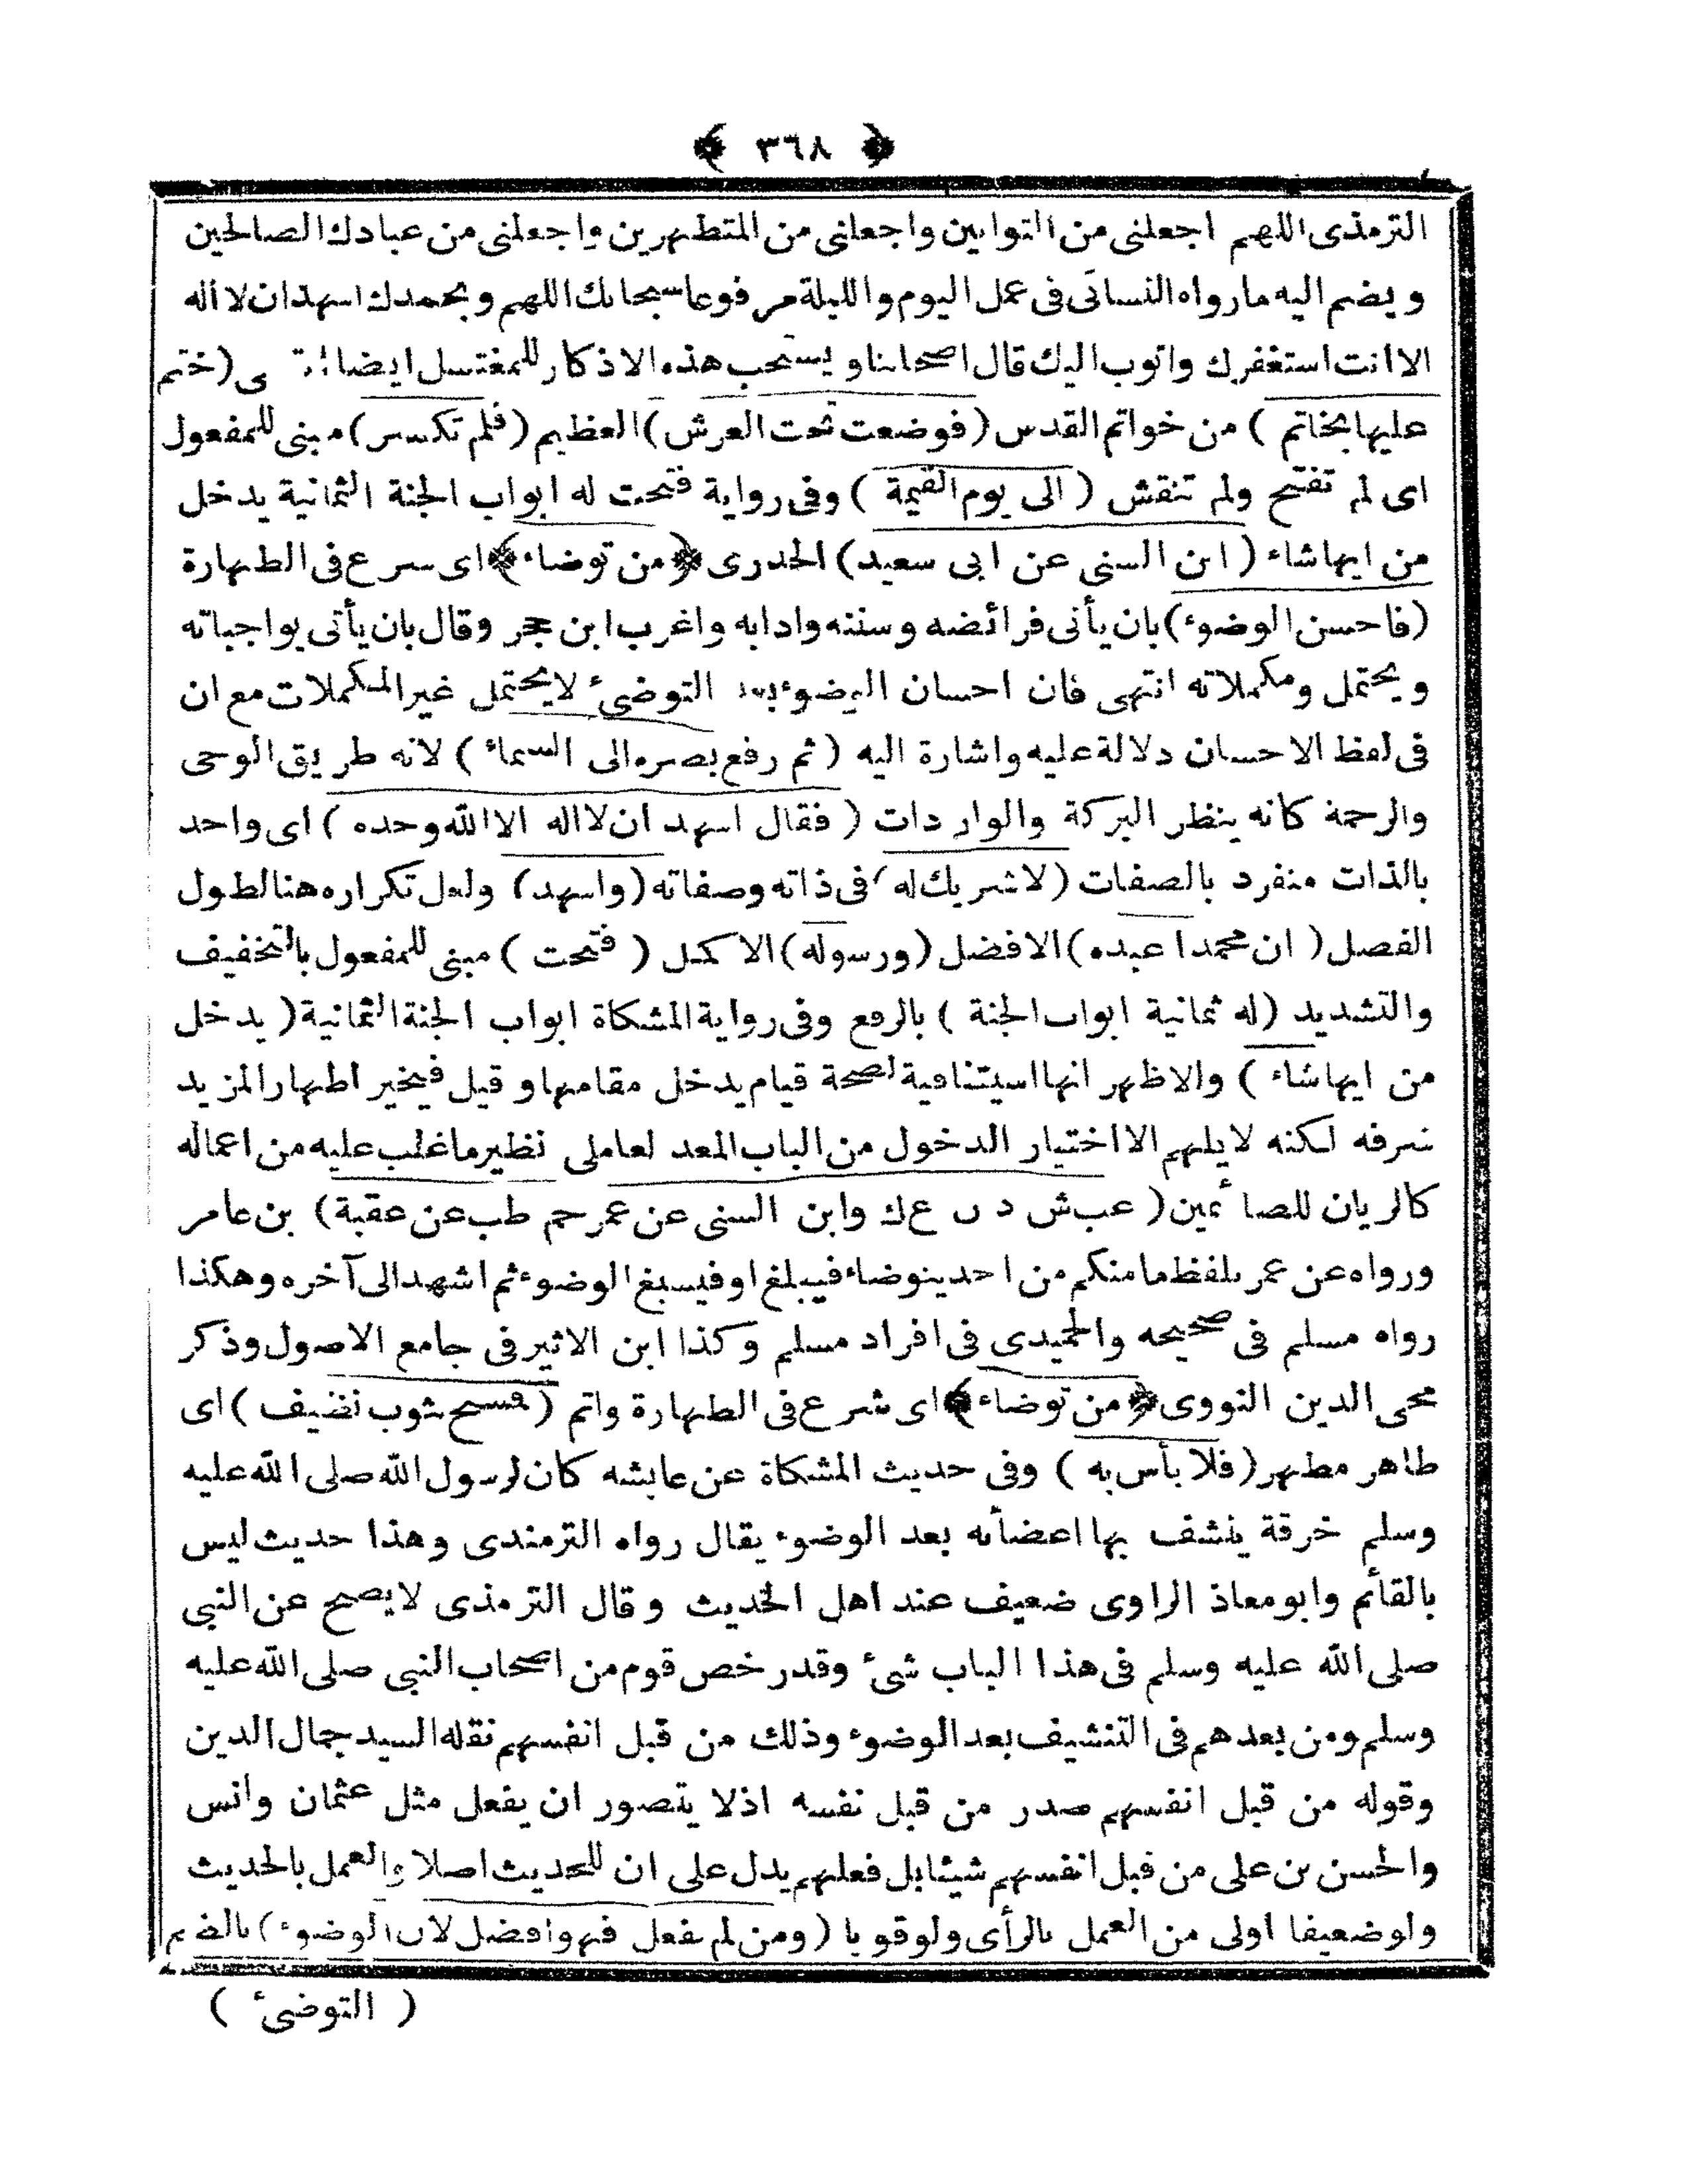 ﴿ ٣٦٨ ﴾
الترمذى اللهم اجعلنى من التوابين واجعلنى من المتطهرين واجعلنى من عبادك الصالحين
ويضم اليه مارواه النسائى فى عمل اليوم والليلة مرفوعا سبحانك اللهم وبحمدك اشهد ان لا اله
الا انت استغفرك واتوب اليك قال اصحابنا ويستحب هذه الاذكار للمغتسل ايضا (ختم
عليها بخاتم ) من خواتم القدس (فوضعت تحت العرش) العظيم (فلم تكسر) مبنى للمفعول
اى لم تفتح ولم تنقش ( الى يوم القيمة ) وفى رواية فتحت له ابواب الجنة الثمانية يدخل
من ايها شاء ( ابن السنى عن ابى سعيد) الخدرى ﴿من توضاء﴾ اى سرع فى الطهارة
(فاحسن الوضوء) بان يأتى فرائضه وسننه وادابه واغرب ابن حجر وقال بان يأتى بواجباته
ويحتمل ومكملاته انتهى فان احسان الوضوء بعد التوضئ لايحتمل غير المكملات مع ان
فى لفظ الاحسان دلالة عليه واشارة اليه ( ثم رفع بصره الى السماء ) لانه طريق الوحى
والرحمة كانه ينظر البركة والواردات ( فقال اشهد ان لا اله الا الله وحده ) اى واحد
بالذات منفرد بالصفات (لاشريك له) فى ذاته وصفاته (واشهد) ولعل تكراره هنا لطول
الفصل ( ان محمدا عبده) الافضل (ورسوله) الاكمل ( فتحت ) مبنى للمفعول بالتخفيف
والتشديد (له ثمانية ابواب الجنة ) بالرفع وفى رواية المشكاة ابواب الجنة الثمانية ( يدخل
من ايها شاء ) والاظهر انها استينافية لصحة قيام يدخل مقامها وقيل فيخير اظهار المزيد
شرفه لكنه لايلهم الا اختيار الدخول من الباب المعد لعاملى نظير ماغلب عليه من اعماله
كالريان للصائمين ( عب ش د ن ع ك وابن السنى عن عمر حم طب عن عقبة) بن عامر
ورواه عن عمر بلفظ مامنكم من احد يتوضاء فيبلغ او فيسبغ الوضوء ثم اشهد الى آخره وهكذا
رواه مسلم فى صحيحه والحميدى فى افراد مسلم وكذا ابن الاثير فى جامع الاصول وذكر
محى الدين النووى ﴿من توضاء﴾ اى شرع فى الطهارة واتم ( فمسح بثوب نظيف ) اى
طاهر مطهر (فلا بأس به ) وفى حديث المشكاة عن عايشه كان لرسول الله صلى الله عليه
وسلم خرقة ينشف بها اعضائه بعد الوضوء يقال رواه الترمندى وهذا حديث ليس
بالقائم وابو معاذ الراوى ضعيف عند اهل الحديث وقال الترمذى لايصح عن النبى
صلى الله عليه وسلم فى هذا الباب شئ وقد رخص قوم من اصحاب النبى صلى الله عليه
وسلم ومن بعدهم فى التنشيف بعد الوضوء وذلك من قبل انفسهم نقله السيد جمال الدين
وقوله من قبل انفسهم صدر من قبل نفسه اذلا يتصور ان يفعل مثل عثمان وانس
والحسن بن على من قبل انفسهم شيئا بل فعلهم يدل على ان للحديث اصلا والعمل بالحديث
ولو ضعيفا اولى من العمل بالرأى ولو قويا (ومن لم يفعل فهو افضل لان الوضوء) بالضم
( التوضئ )